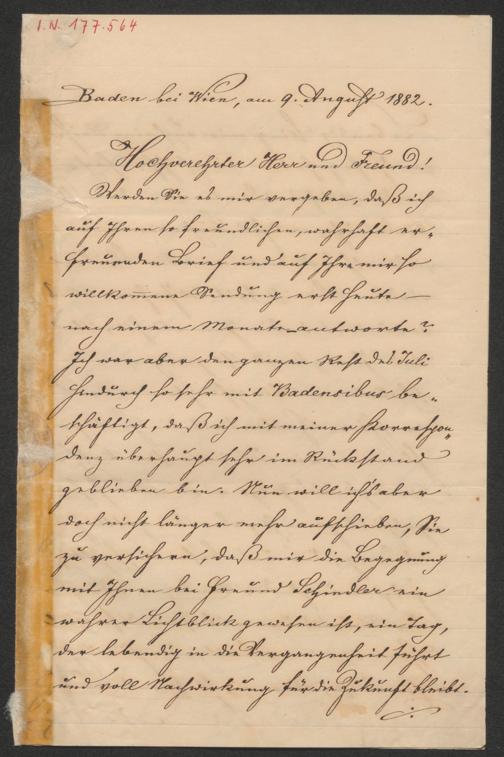 I.N. 177.564
Baden bei Wien, am 9. August 1882.
Hochverehrter Herr und Freund!
Werden Sie es mir vergeben, daß ich
auf Ihren so freundlichen, wahrhaft er-
freuenden Brief und auf Ihre mir so
willkom̅ene Sendung erst heute —
nach einem Monate – antworte?
Ich war aber den ganzen Rest des Juli
hindurch so sehr mit Badensibus be-
schäftigt, daß ich mit meiner Korrespon-
denz überhaupt sehr im Rückstand
geblieben bin. Nun will ich's aber
doch nicht länger mehr aufschieben, Sie
zu versichern, daß mir die Begegnung
mit Ihnen bei Freund Schindler ein
wahrer Lichtblick gewesen ist, ein Tag,
der lebendig in die Vergangenheit führt
und voll Nachwirkung für die Zukunft bleibt.